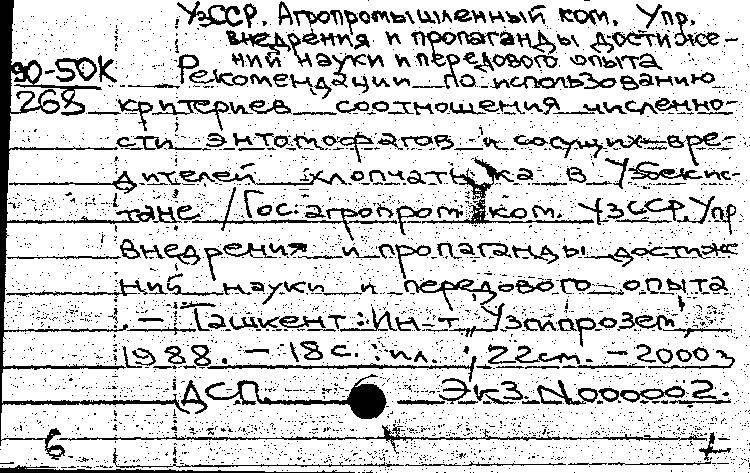 УзССР. Агропромышленный ком. Упр.
внедрения и пропаганды достиже-
ний науки и передового опыта
90-50К Рекомендации по использованию
268 критериев соотношения численно-
сти энтомофагов и сосущих вре-
дителей хлопчатника в Узбекис-
тане / Гос. агропром. ком. УзССР. Упр
внедрения и пропаганды достиж
ний науки и передового опыта
. – Ташкент: Ин-т „Узгипрозем",
1988. – 18 с. : ил. ; 22 см. – 2000 э
ДСП. Экз. N000002.
6 +